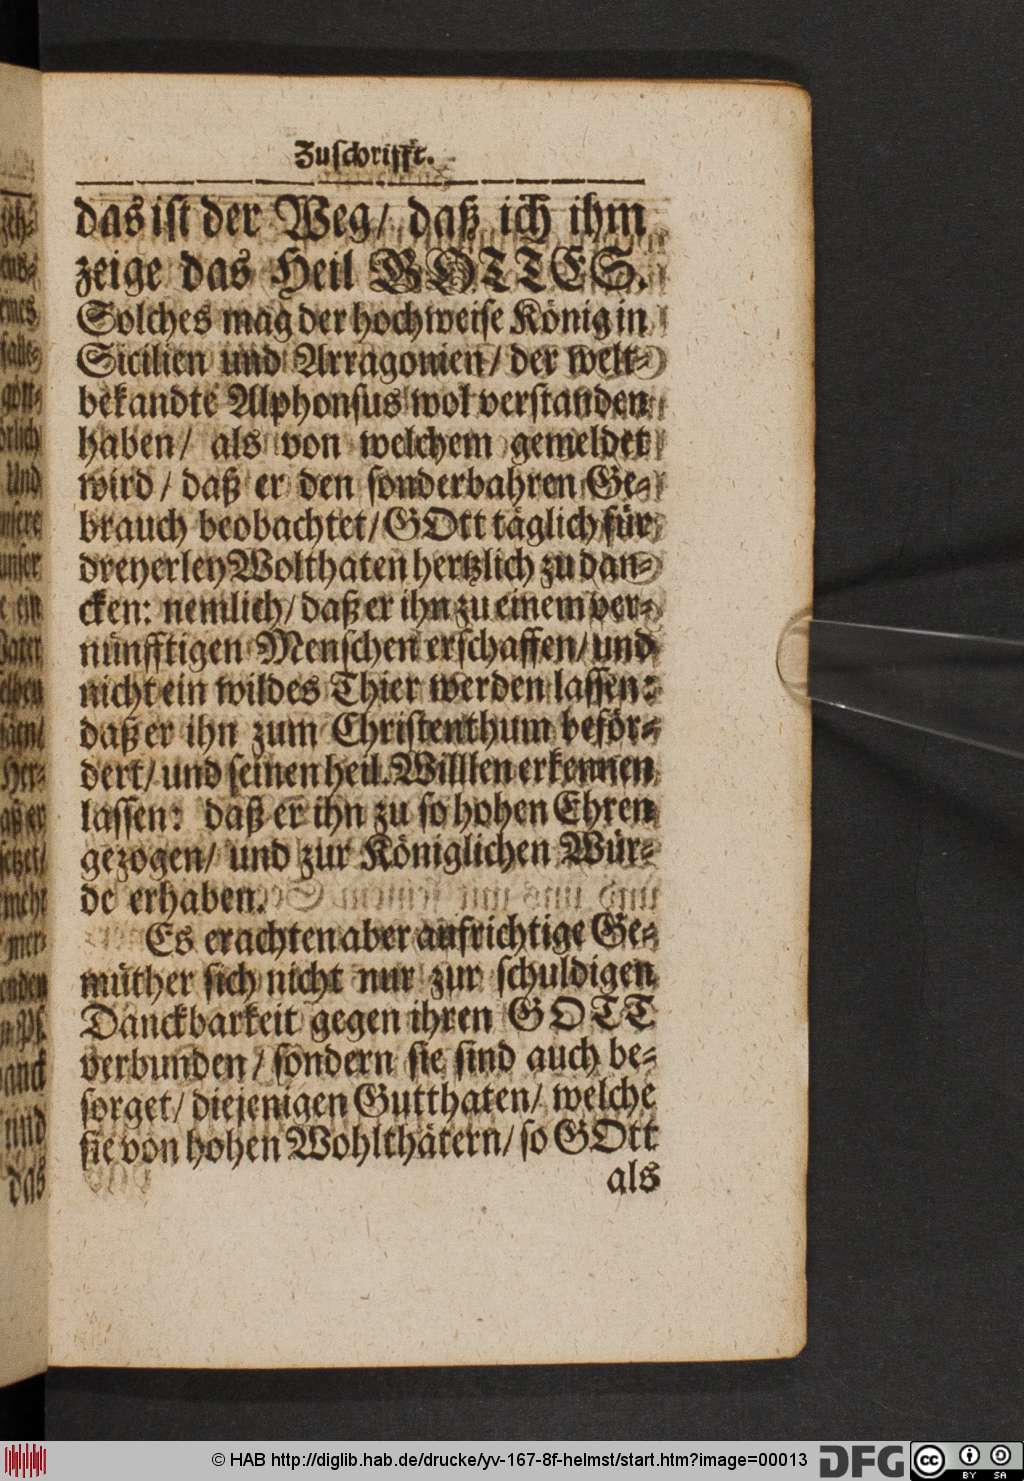 Zuschrifft.
das ist der Weg/ daß ich ihm
zeige das Heil GOTTES.
Solches mag der hochweise König in
Sicilien und Arragonien/ der welt-
bekandte Alphonsus wol verstanden
haben/ als von welchem gemeldet
wird/ daß er den sonderbahren Ge-
brauch beobachtet/ GOtt täglich für
dreyerley Wolthaten hertzlich zu dan-
cken: nemlich/ daß er ihn zu einem ver-
nünfftigen Menschen erschaffen/ und
nicht ein wildes Thier werden lassen:
daß er ihn zum Christenthum beför-
dert/ und seinen heil. Willlen erkennen
lassen: daß er ihn zu so hohen Ehren
gezogen/ und zur Königlichen Wür-
de erhaben.
Es erachten aber aufrichtige Ge-
müther sich nicht nur zur schuldigen
Danckbarkeit gegen ihren GOTT
verbunden/ sondern sie sind auch be-
sorget/ diejenigen Gutthaten/ welche
sie von hohen Wohlthätern/ so GOtt
als
eines
Und
unsere
unser
ein
Vater
Her-
und
das
© HAB http://diglib.hab.de/drucke/yv-167-8f-helmst/start.htm?image=00013
DFG
cc BY SA